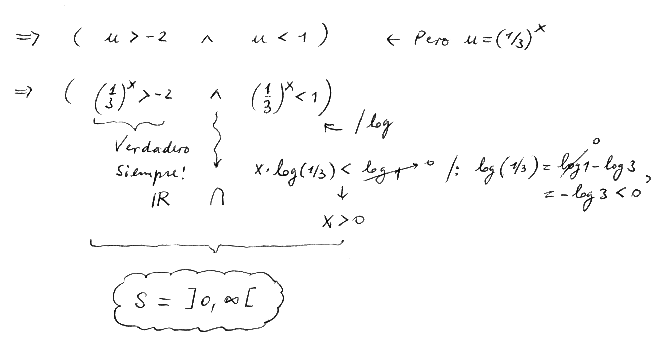 ⇒ ( u > -2 ∧ u < 1 ) ← Pero u = (1/3)^x
⇒ ( (1/3)^x > -2 ∧ (1/3)^x < 1 )
← /log
Verdadero
siempre!
x · log(1/3) < log 1 → 0 /: log(1/3) = log 1 - log 3,
0
= - log 3 < 0
IR ∩
↓
x > 0
S = ]0, ∞[